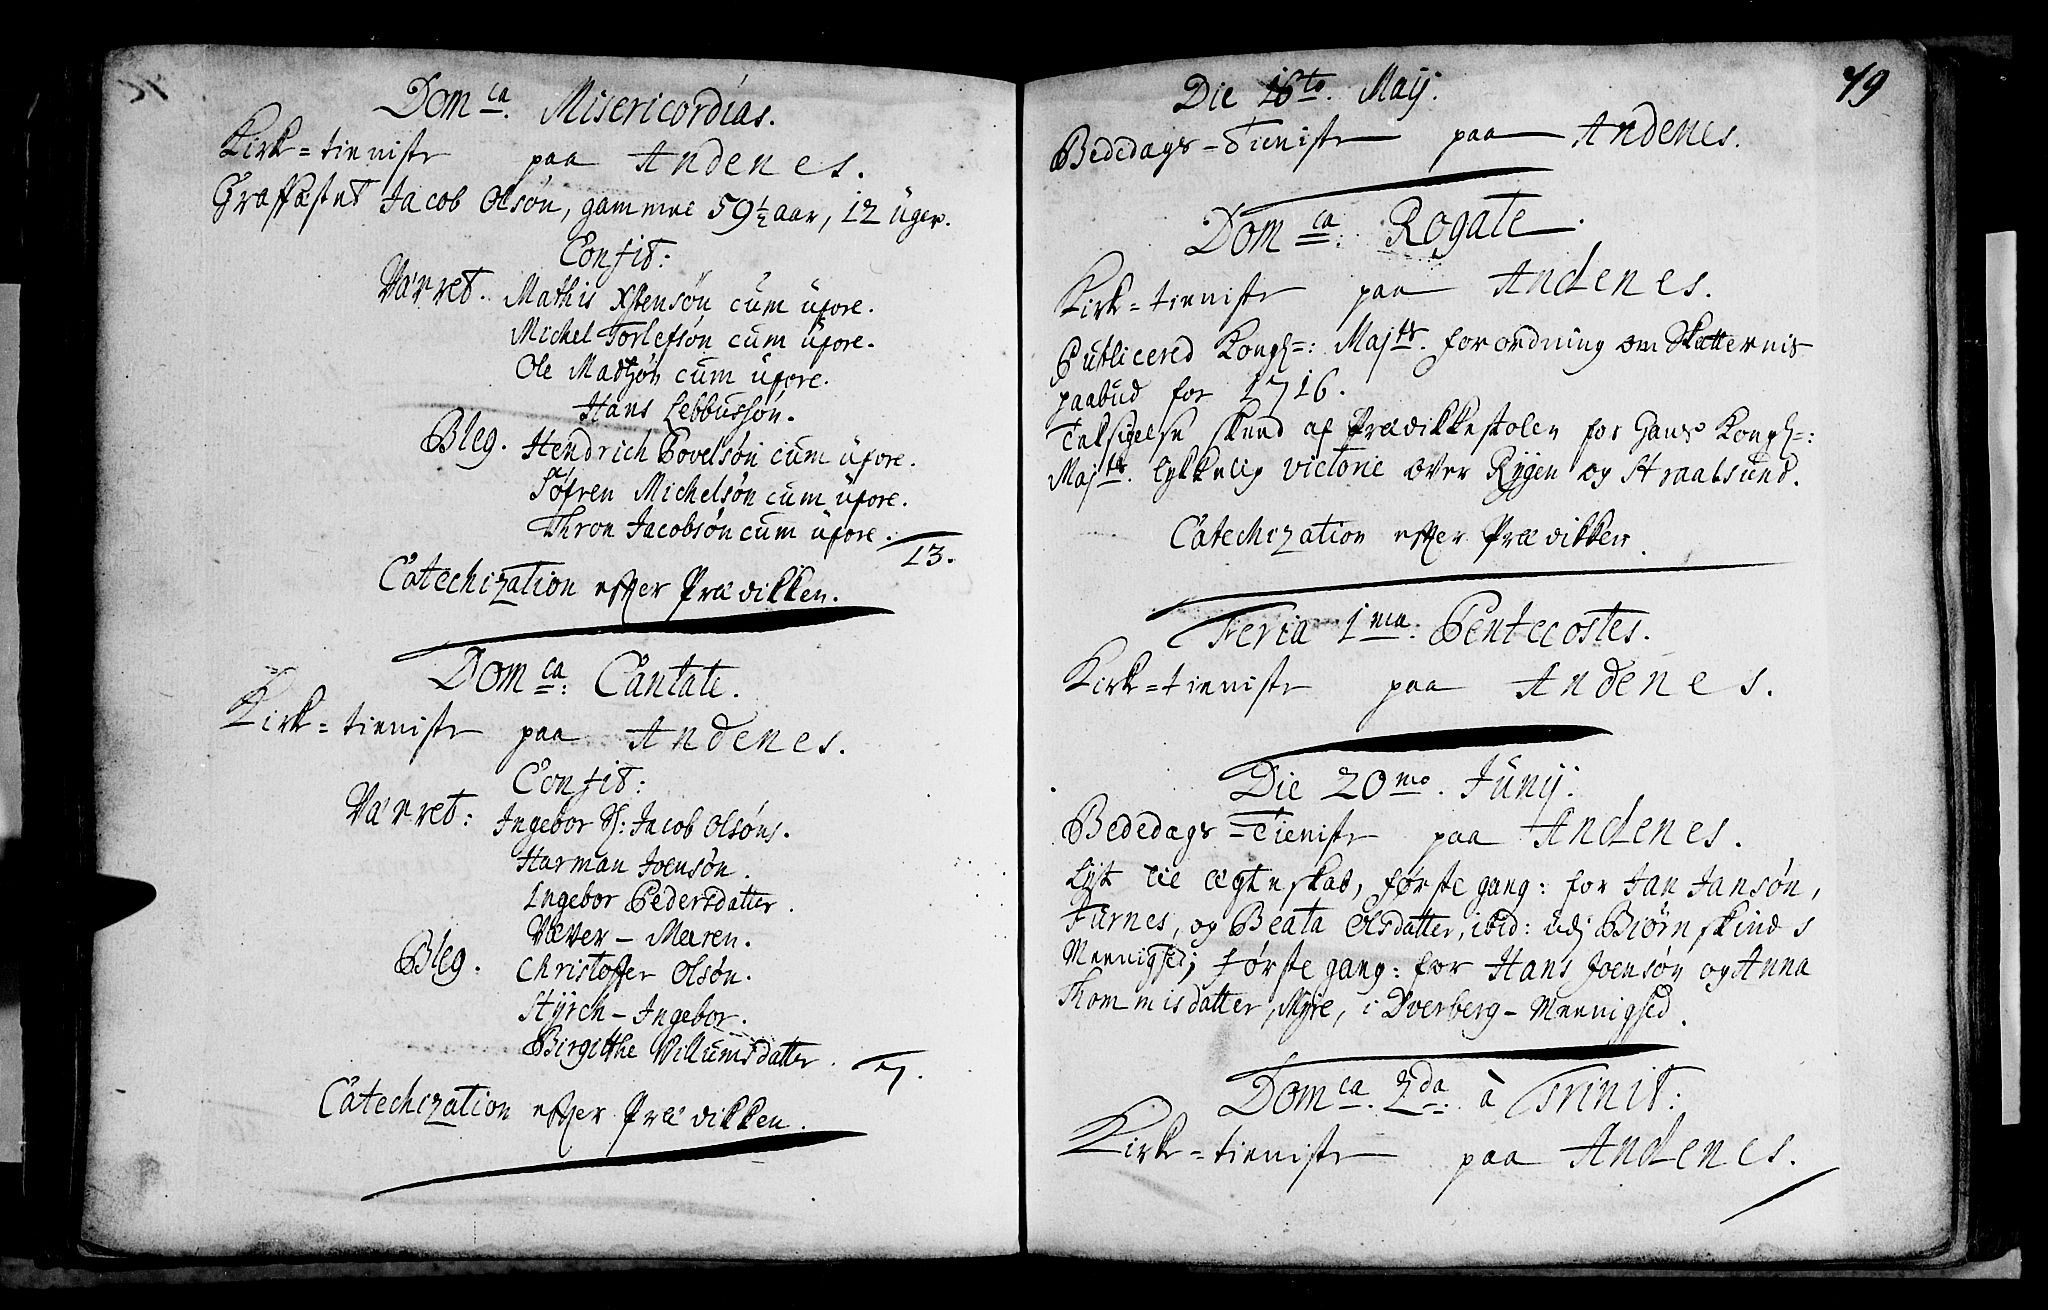 Dom ca. Misericordias.
Kirk=tieniste paa Andenes.
Graffæstet Jacob Olsøn, gammel 59½ aar, 12 üger.
Confit:
Værret. Mathis Xstensøn cum üxore.
Michel Torlefsøn cum üxore.
Ole Madtzøn cum üxore.
Hans Lebbussøn.
Bleg. Hendrich Povelsøn cum üxore.
Søfren Michelsøn cum üxore.
Thron Jacobsøn cum üxore.
13.
Catechization effter Prædikken.
Dom ca. Cantate.
Kirk=tieniste paa Andenes.
Confit:
Værret: Ingebor Sl: Jacob Olsøns.
Harman Joensøn.
Ingebor Pedersdatter.
Væver-Maren.
Bleg. Christoffer Olsøn.
Styrch-Ingebor.
Birgitthe Villumsdatter.
7.
Catechization effter Prædikken.
79
Die 16to. Maij.
Bededags-Tieniste paa Andenes.
Dom ca. Rogate.
Kirk=tieniste paa Andenes.
Publicered Kongl=: Majts. forordning om Skatternis
paabud for 1716.
Taksigelse skeed af Prædikkestolen for Hans Kongl=:
Majts. lykkelig victorie over Rygen og Straalsund.
Catechization effter Prædikken.
Feria 1ma. Pentecostes.
Kirk=tieniste paa Andenes.
Die 20mo. Junij.
Bededags=Tieniste paa Andenes.
Lyst til ægteskab, første gang: for Jan Jansøn,
Türnes, og Beata Olsdatter, ibid: udj Biørnskinds
Meenighed; første gang: for Hans Joensøn og Anna
Thommisdatter, Myre, i Dverberg-Meenighed.
Dom ca. 2da. à Trinit:
Kirk=tieniste paa Andenes.